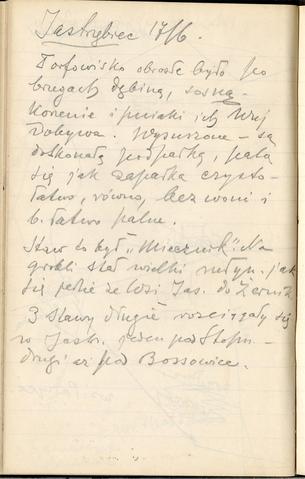 Jastrzębiec 17/6.
Torfowisko obrosłe było po
brzegach dębiną, sosną.
Korzenie i pniaki ich Wuj
dobywa. Wysuszone – są
doskonałą podpałką, palą
się jak zapałka czysto –
łatwo, równo, bez woni i
b. łatwo palne.
Staw to był „Miecznik”. Na
grobli stał wielki młyn. jak
się jedzie ze Wsi Jas. do Żernik
3 stawy długie rozciągały się
w Jastr. jeden pod Stopn. –
drugi aż pod Bossowice.